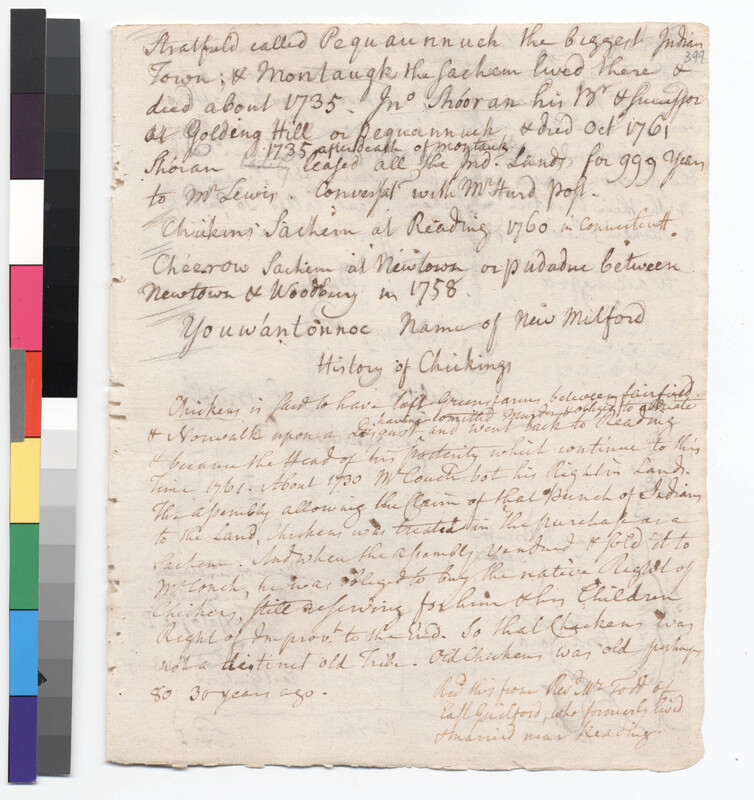 Stratfield called Pequaunnuck the biggest Indian
399
Town; & Montaugk the Sachem lived there &
died about 1735. Jno Shóoran his Br & Successor
at Golding Hill or Pequannuck & died Oct 1761
1735 after death of Montauk
Shoran leased all the Indn Lands for 999 Years
to Mr Lewis. Conversat with Mr Hurd Post.
Chickins Sachem at Reading 1760 in Connecticutt.
Cheerow Sachem at Newtown or pudadue between
Newtown & Woodbury in 1758.
Youwántonnoc Name of New Milford
History of Chickings
Chickens is said to have left Greensfarms between fairfield
having comitted Murder & obliged to
& Norwalk upon a Disgust and went back to Reading
& became the Head of his posterity which continue to this
Time 1761. About 1730 Mr Couch bot his Right in Lands.
The Assembly allowing the Claim of that Bunch of Indians
to the Land, Chickens was treated in the purchase as a
Sachem. And when the Assembly vendued & sold it to
Mr Couch, he was obliged to buy the native Right of
Chickens still reserving for him & his Children
Right of Improvt to the End. So that Chickens was
not a distinct old Tribe. Old Chickens was old perhaps
80 30 years ago.
Recd this from Revd Mr Todd of
East Guilford, who formerly lived
& married near Reading.